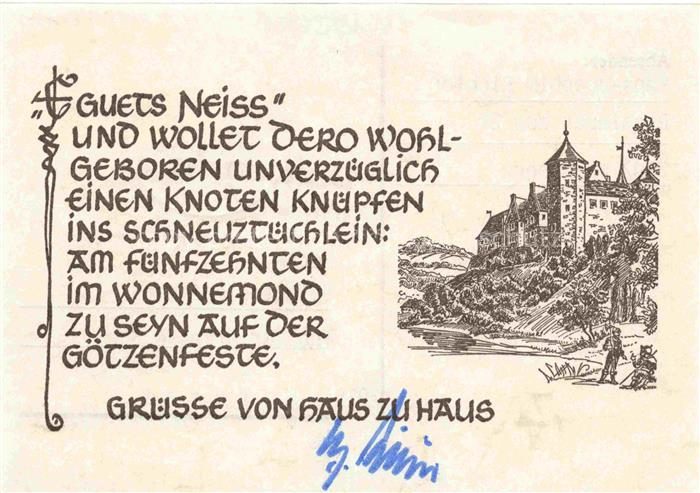 „A GUETS NEISS“
UND WOLLET DERO WOHL-
GEBOREN UNVERZÜGLICH
EINEN KNOTEN KNÜPFEN
INS SCHNEUZTÜCHLEIN:
AM FÜNFZEHNTEN
IM WONNEMOND
ZU SEYN AUF DER
GÖTZENFESTE.
GRÜSSE VON HAUS ZU HAUS